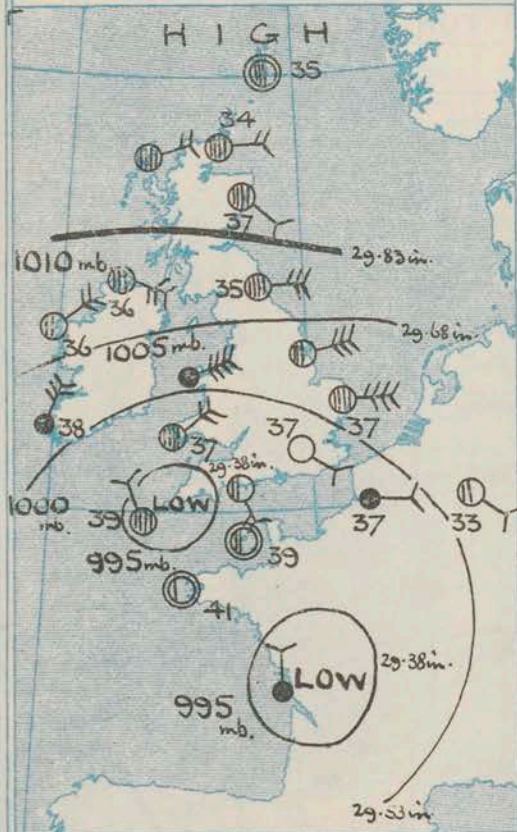 HIGH
35
34
37
1010 mb.
29.83 in.
36
35
36
1005 mb.
29.68 in.
38
37
37
37
29.38 in.
1000 mb.
LOW
39
37
33
995 mb.
39
41
LOW
29.38 in.
995 mb.
29.53 in.